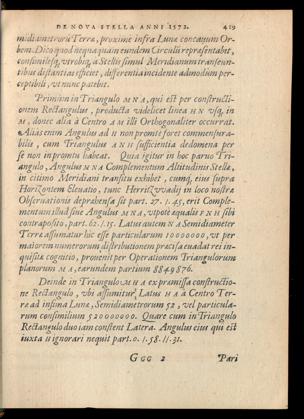 DE NOVA STELLA ANNI 1572. 419
midiametrorũ Terræ, proximè infra Lunæ concauum Or-
bem. Dico quod nequaquàm eundem Circulũ repræsentabit,
consimilesq́; vtrobiq; à Stellis simul Meridianum transeun-
tibus distantias efficiet, differentia incidente admodùm per-
ceptibili, vt nunc patebit.
Primùm in Triangulo M N A, qui est per constructi-
onem Rectangulus, producta videlicet linea H N vsq; in
M, donec alia à Centro A M illi Orthogonaliter occurrat.
Aliàs enim Angulus ad H non promtè foret commensura-
bilis, cum Triangulus A N H sufficientia dedomena per
se non in promtu habeat. Quia igitur in hoc paruo Tri-
angulo, Angulus H N A Complementum Altitudinis Stellæ,
in citimo Meridiani transitu exhibet, cumq́; eius supra
Horizontem Eleuatio, tunc Herritzvvadij in loco nostræ
Obseruationis deprahensa sit part. 27. 1. 45, erit Comple-
mentum illud siue Angulus M N A, vtpotè equalis F N H sibi
contraposito, part. 62. 1. 15. Latus autem N A Semidiameter
Terræ assumatur hîc esse particularum 10000000, vt per
maiorem numerorum distributionem præcisa euadat rei in-
quisitæ cognitio, prouenit per Operationem Triangulorum
planorum M A, earundem partium 8849876.
Deinde in Triangulo M H A ex præmissa constructio-
ne Rectangulo, vbi assumitur Latus H A à Centro Ter-
ræ ad infima Lunæ, Semidiametrorum 52, vel particula-
rum consimilium 520000000. Quare cum in Triangulo
Rectangulo duo iam constent Latera. Angulus eius qui est
iuxta H ignorari nequit part. 0. 1. 58. 11. 31.
G GG 2 Pari